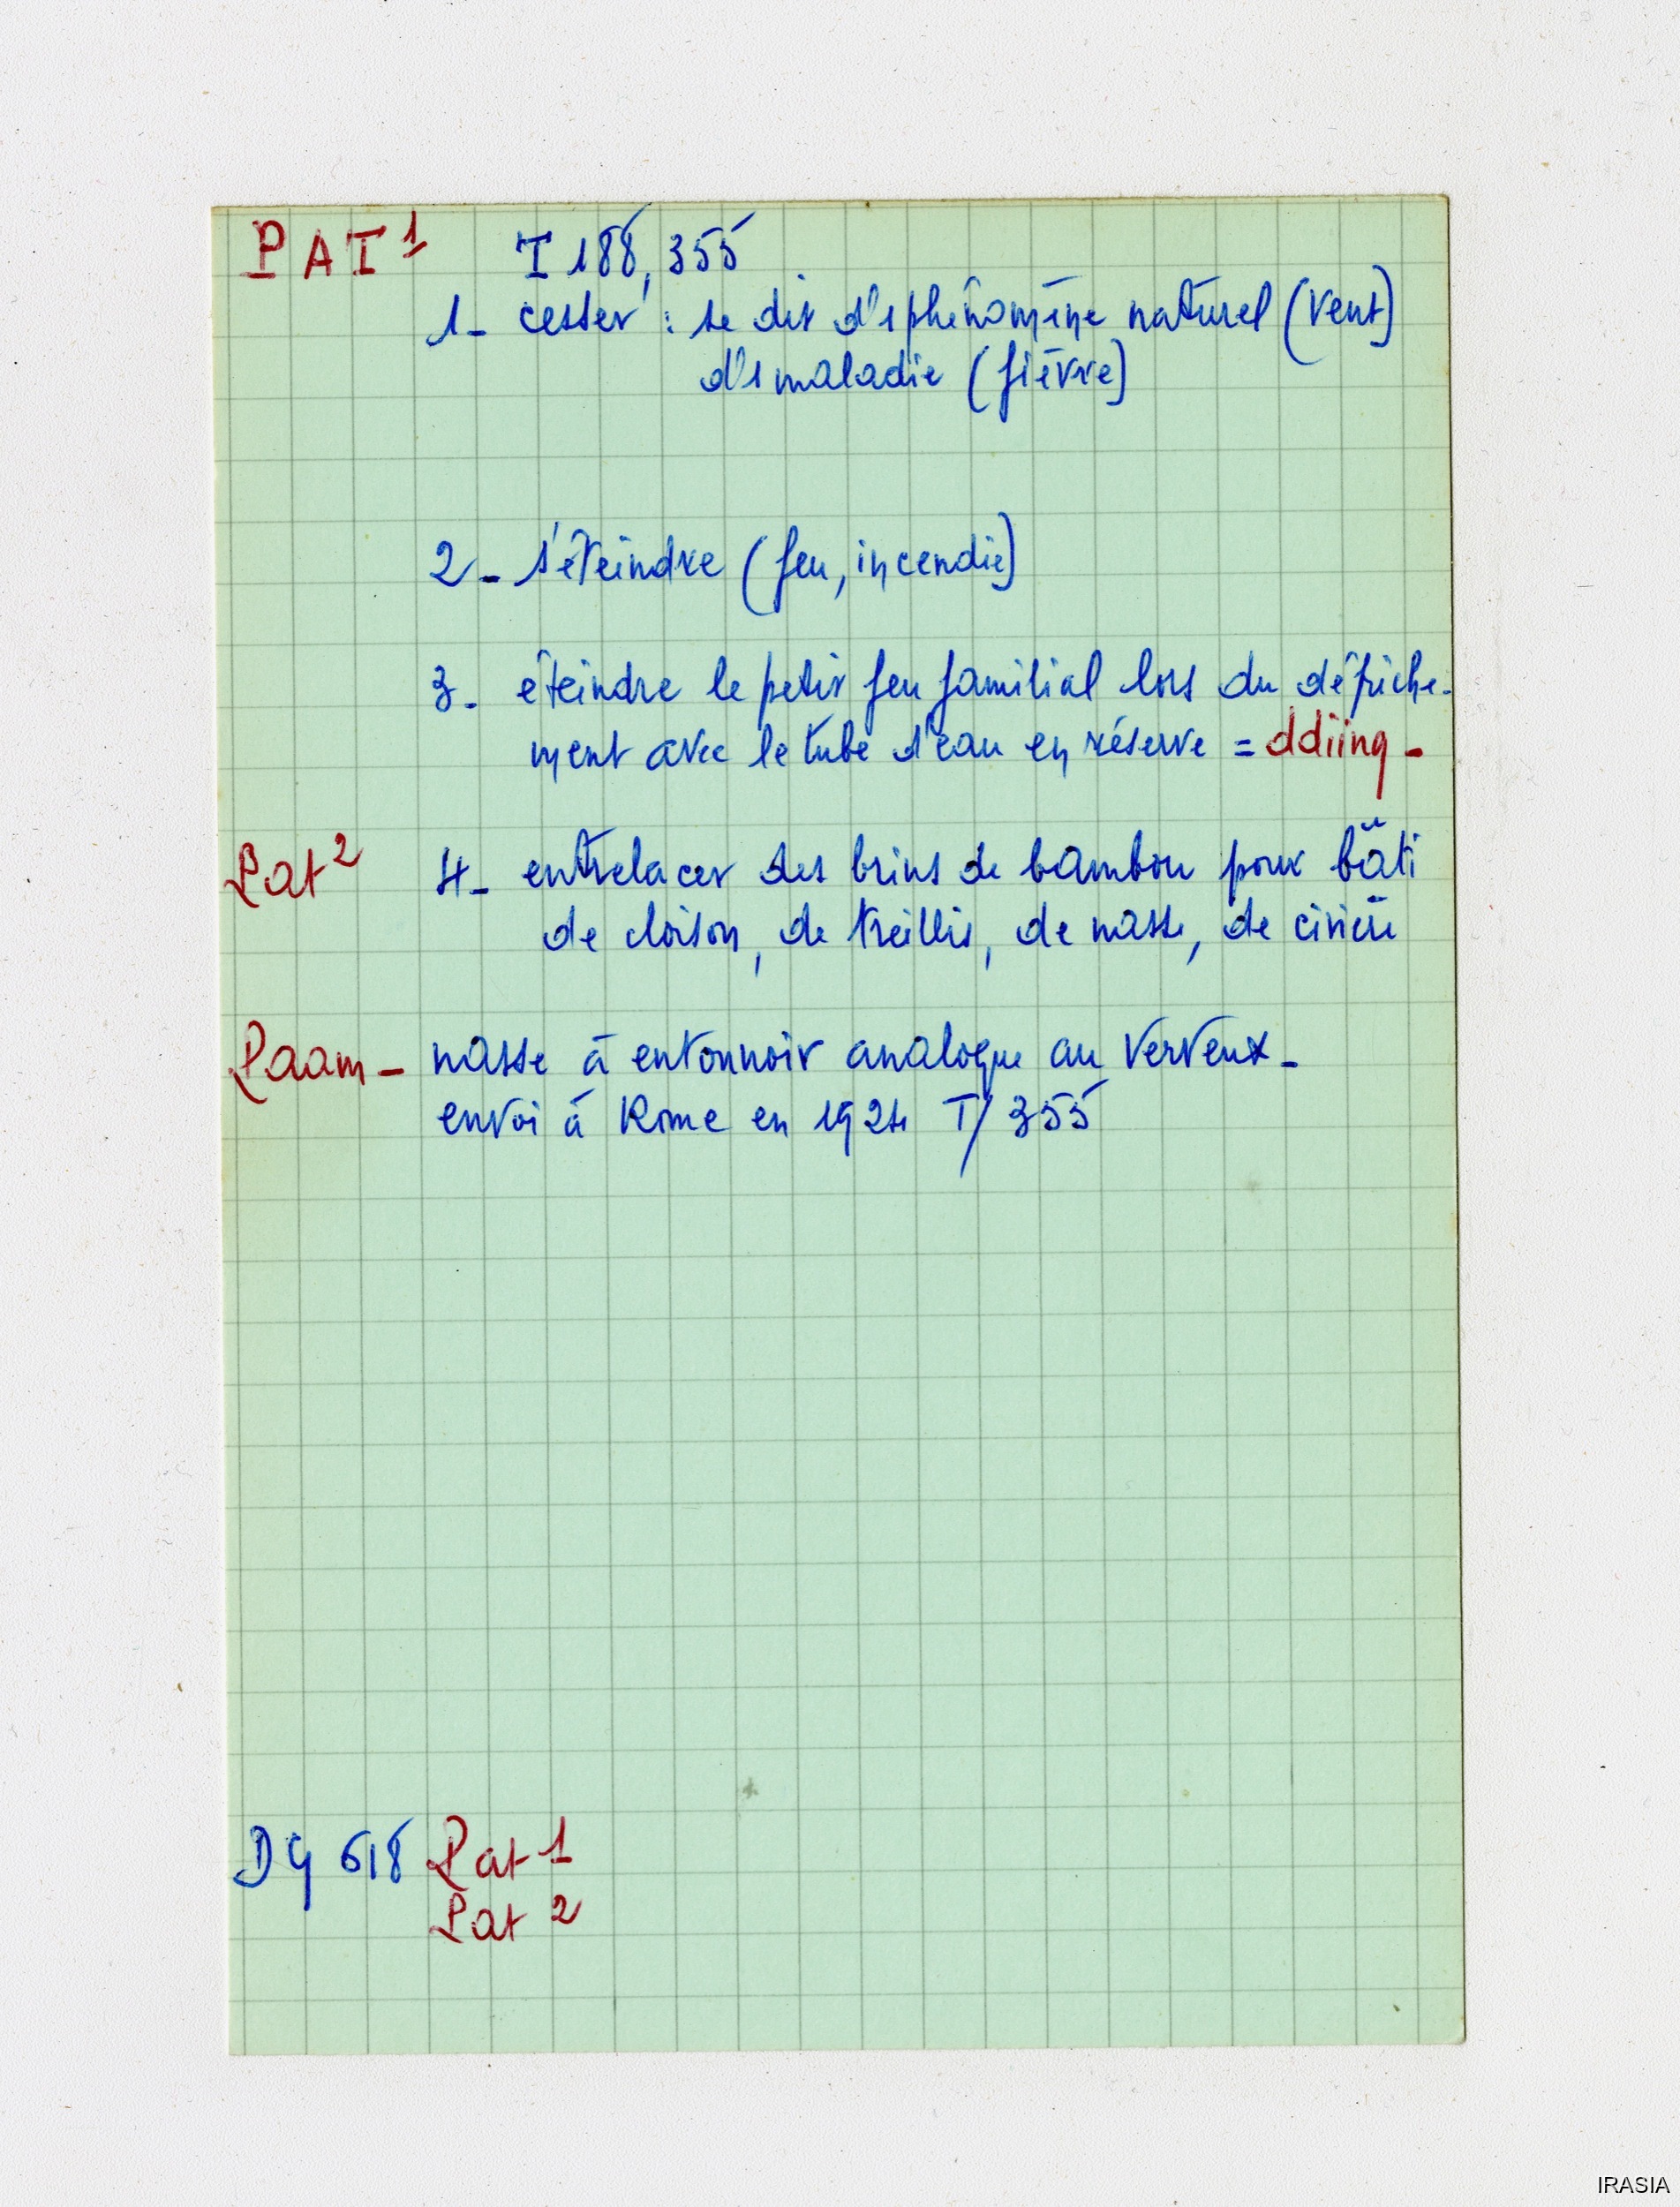 PAT¹ T 188, 355
1- cesser : se dit d'1 phénomène naturel (vent)
d'1 maladie (fièvre)
2- s'éteindre (feu, incendie)
3- éteindre le petit feu familial lors du défriche-
ment avec le tube d'eau en réserve = ddiing -
Pat² 4- entrelacer des brins de bambou pour bâti
de cloison, de treillis, de nasse, de civière
Paam - nasse à entonnoir analogue au verveux -
envoi à Rome en 1924 T/ 355
DG 618 Pat 1
Pat 2
IRASIA